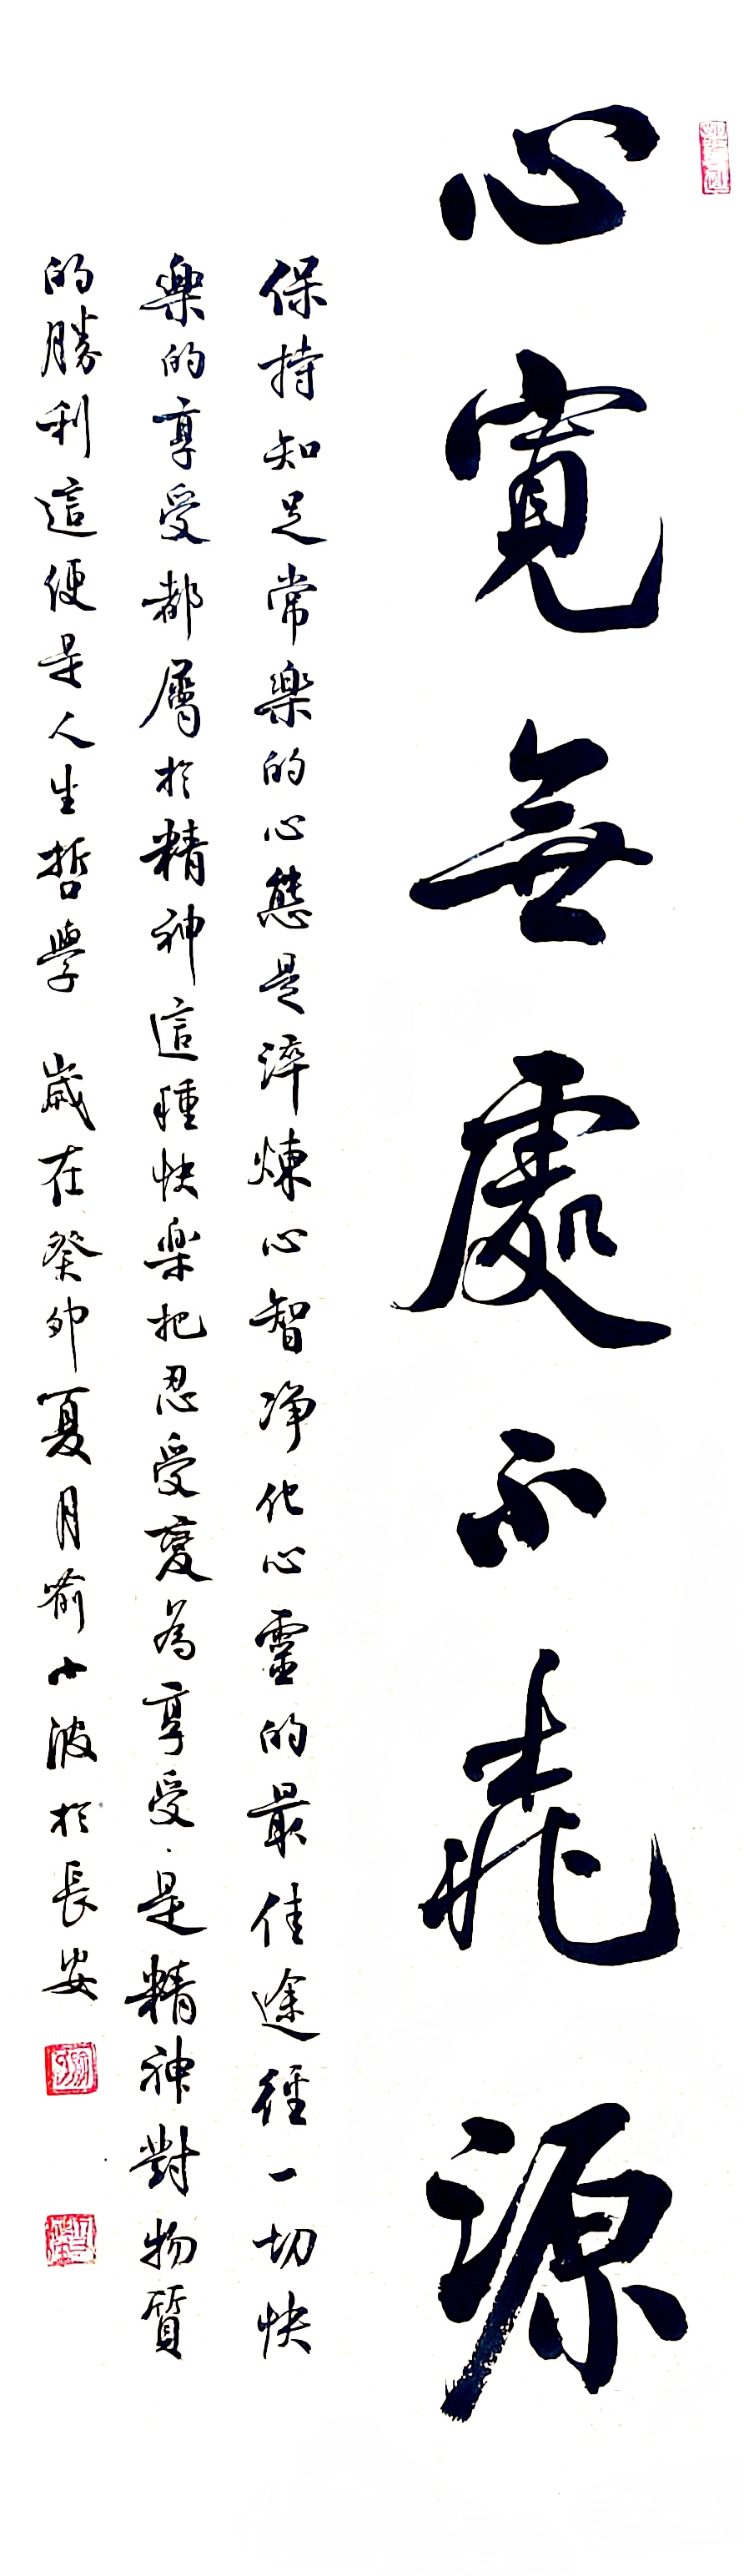 心寬無處不桃源
保持知足常樂的心態是淬煉心智净化心靈的最佳途徑一切快
樂的享受都屬於精神這種快樂把忍受變為享受是精神對物質
的勝利這便是人生哲學 歲在癸卯夏月喻小波於長安